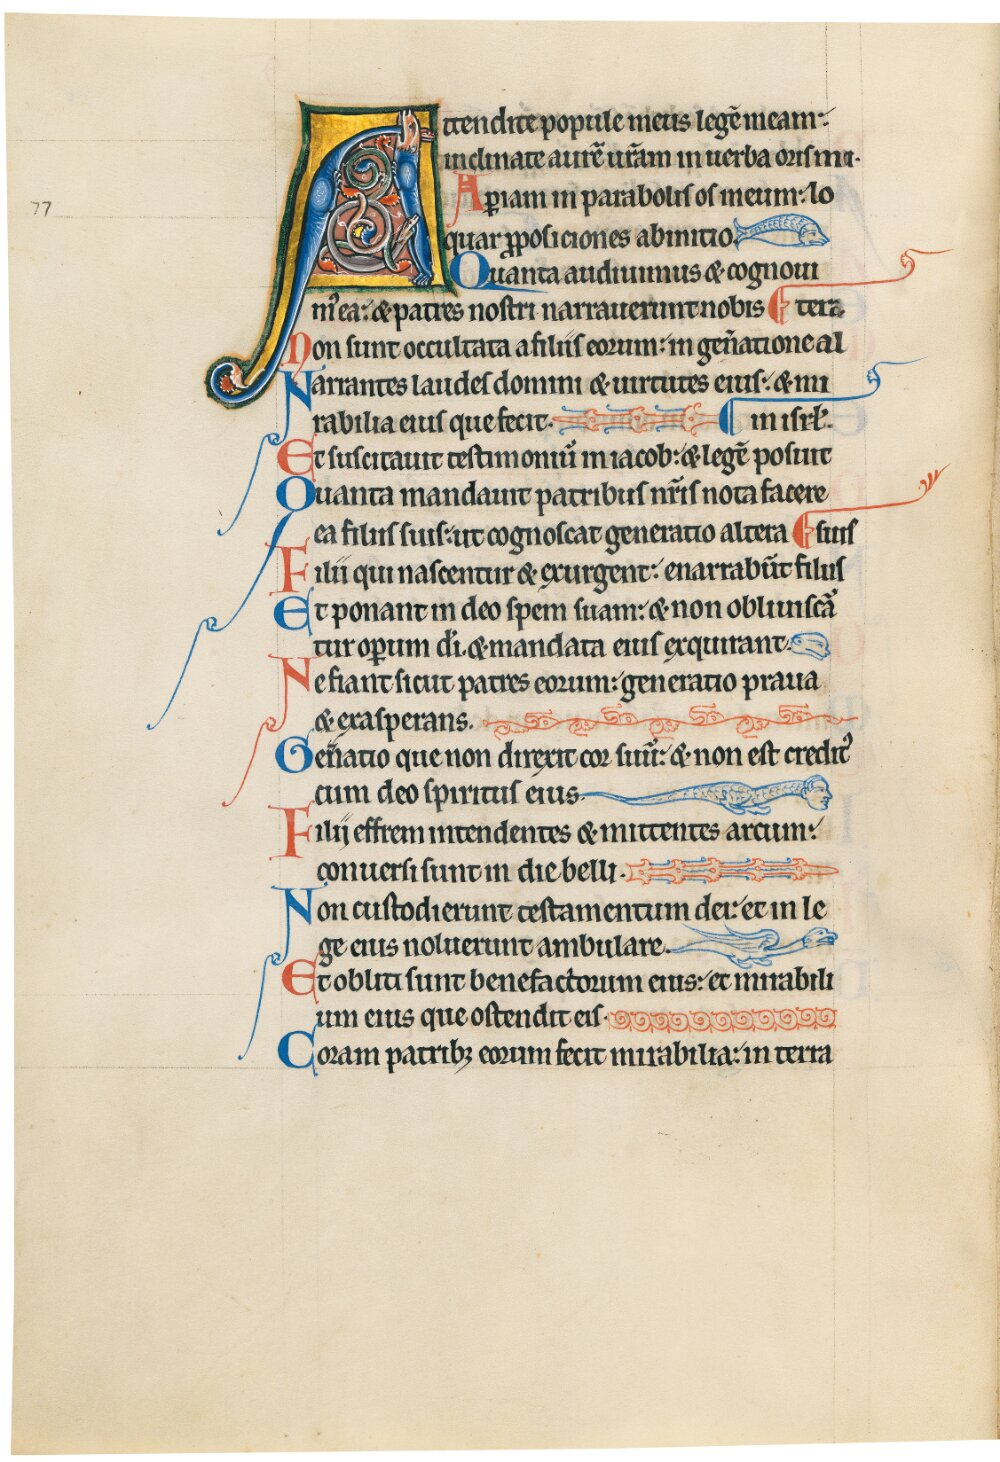 77
Attendite popule meus legẽ meam:
inclinate aurẽ urãm in uerba oris mei.
Aperiam in parabolis os meum: lo
quar ꝓposiciones ab initio
Quanta audiuimus & cognoui
mꝰ ea: & patres nostri narrauerunt nobis tera
Non sunt occultata a filiis eorum: in geñatione al
Narrantes laudes domini & uirtutes eius: & mi
rabilia eius que fecit. in isrł.
Et suscitauit testimoniũ in iacob: & legẽ posuit
Quanta mandauit patribus nr̃is nota facere
ea filiis suis: ut cognoscat generatio altera suis
Filii qui nascentur & exurgent: enarrabũt filiis
Et ponant in deo spem suam: & non obliuiscã
tur oꝑum di. & mandata eius exquirant.
Ne fiant sicut patres eorum: generatio praua
& exasperans.
Geñatio que non direxit cor suũ: & non est creditꝰ
cum deo spiritus eius.
Filij effrem intendentes & mittentes arcum:
conuersi sunt in die belli.
Non custodierunt testamentum dei: et in le
ge eius noluerunt ambulare.
Et obliti sunt benefactorum eius: et mirabili
um eius que ostendit eis.
Coram patribꝫ eorum fecit mirabilia: in terra